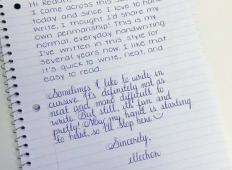 Hi Reddit! I
came across this
today and since I love to hand
write, I thought I'd share my
own penmanship! This is my
normal, everyday handwriting
I've written in this style for
several years now. I like that
it's quick to write, neat, and
easy to read.
Sometimes I like to write in
cursive. It's definitely not as
neat and more difficult to
write. But still, it's fun and
pretty! Now my hand is starting
to hurt, so I'll stop here
Sincerely,